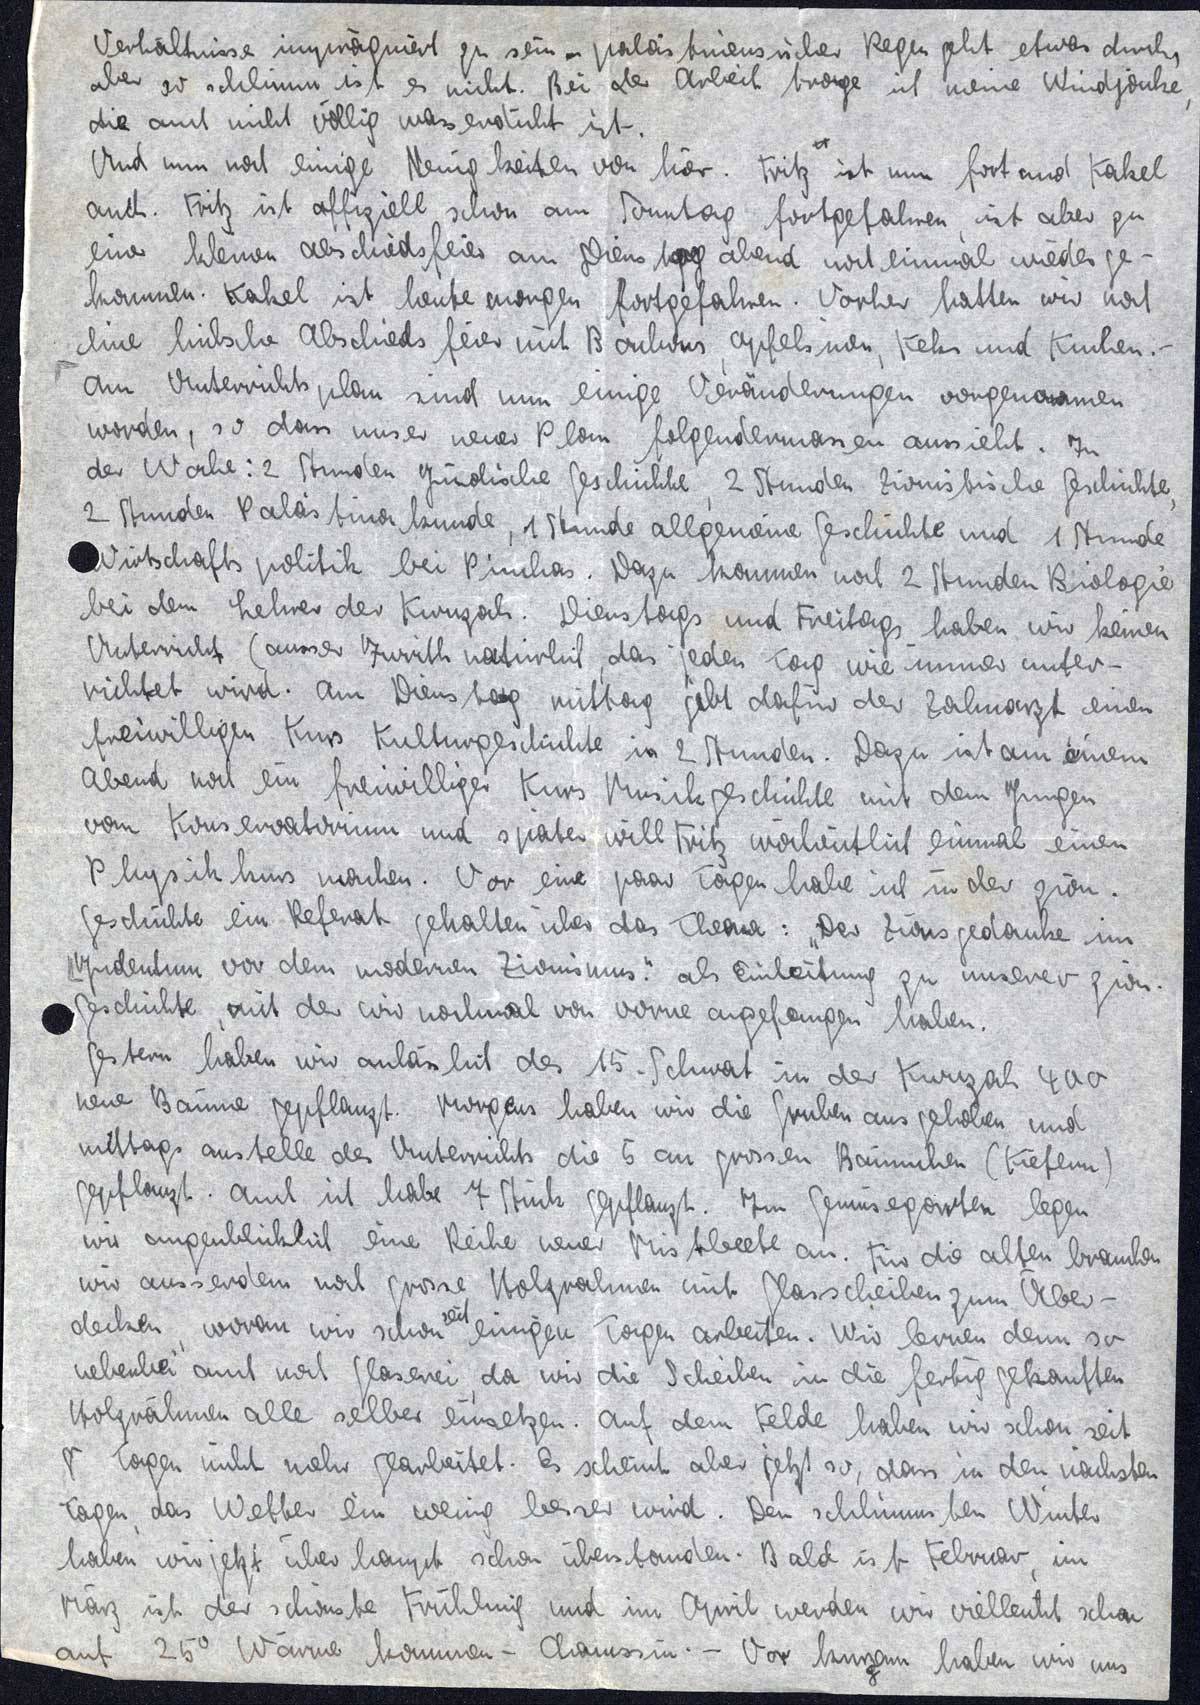 Verhältnisse imprägniert zu sein – palästinensischer Regen geht etwas durch,
aber so schlimm ist es nicht. Bei der Arbeit trage ich meine Windjacke,
die auch nicht völlig wasserdicht ist.
Und nun noch einige Neuigkeiten von hier. Fritz ist nun fort und Kakel
auch. Fritz ist offiziell schon am Sonntag fortgefahren, ist aber zu
einer kleinen Abschiedsfeier am Dienstag abend noch einmal wiederge-
kommen. Kakel ist heute morgen fortgefahren. Vorher hatten wir noch
eine hübsche Abschiedsfeier mit Apfelsinen, Keks und Kuchen.-
Am Unterrichtsplan sind nun einige Veränderungen vorgenommen
worden, so dass unser neuer Plan folgendermassen aussieht. In
der Woche: 2 Stunden Jüdische Geschichte, 2 Stunden Zionistische Geschichte,
2 Stunden Palästinakunde, 1 Stunde allgemeine Geschichte und 1 Stunde
Wirtschaftspolitik bei Pinchas. Dazu kommen noch 2 Stunden Biologie
bei dem Lehrer der Kwuzah. Dienstags und Freitags haben wir keinen
Unterricht (ausser Iwrith natürlich, das jeden Tag wie immer unter-
richtet wird. Am Dienstag mittag gibt dafür der Zahnarzt einen
freiwilligen Kurs Kulturgeschichte in 2 Stunden. Dazu ist am einem
Abend noch ein freiwilliger Kurs Musikgeschichte mit dem Jungen
vom Konservatorium und später will Fritz wöchentlich einmal einen
Physikkurs machen. Vor eine paar Tagen habe ich in der zion.
Geschichte ein Referat gehalten über das Thema: „Der Zionsgedanke im
Judentum vor dem modernen Zionismus." als Einleitung zu unserer zion.
Geschichte, mit der wir nochmal von vorne angefangen haben.
Gestern haben wir anlässlich des 15. Schwat in der Kwuzah 400
neue Bäume gepflanzt. Morgens haben wir die Gruben ausgehoben und
mittags anstelle des Unterrichts die 5 cm grossen Bäumchen (Kiefern)
gepflanzt. Auch ich habe 7 Stück gepflanzt. Im Gemüsegarten legen
wir augenblicklich eine Reihe neuer Mistbeete an. Für die alten brauchen
wir ausserdem noch grosse Holzrahmen mit Glasscheiben zum Über-
decken, woran wir schon seit einigen Tagen arbeiten. Wir lernen denn so
nebenbei auch noch Glaserei, da wir die Scheiben in die fertig gekauften
Holzrähmen alle selber einsetzen. Auf dem Felde haben wir schon seit
8 Tagen nicht mehr gearbeitet. Es scheint aber jetzt so, dass in den nächsten
Tagen das Wetter ein wenig besser wird. Den schlimmsten Winter
haben wir jetzt überhaupt schon überstanden. Bald ist Februar, im
März ist der schönste Frühling und im April werden wir vielleicht schon
auf 25° Wärme kommen – Chamssin.– Vor kurzem haben wir uns